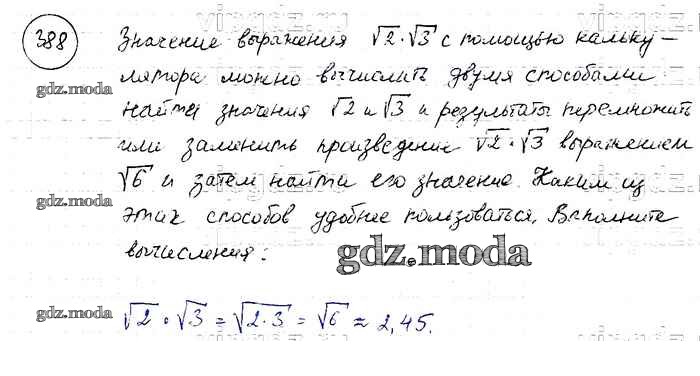 388 Значение выражения √2·√3 с помощью кальку-
лятора можно вычислить двумя способами
gdz.moda
найти значения √2 и √3 и результаты перемножить
или заменить произведение √2·√3 выражением
√6 и затем найти его значение. Каким из
gdz.moda
этих способов удобнее пользоваться. Выполните
вычисления:
gdz.moda
gdz.moda
√2 · √3 = √2·3 = √6 ≈ 2,45.